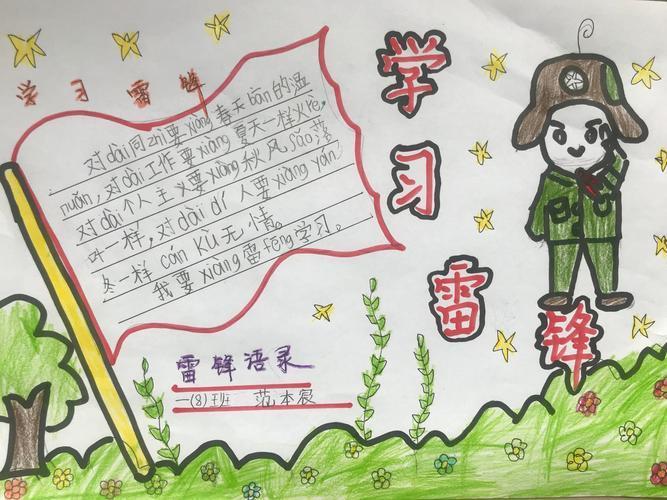 学习雷锋
学习雷锋
对dài同zhì要xiàng春天bān的温
nuǎn，对dài工作要xiàng夏天一样火rè，
对dài个人主义要xiàng秋风sǎo落
叶一样，对dài dí人要xiàng yán
冬一样cán kù无情。
我要xiàng雷fēng学习。
雷锋语录
一(8)班 范本宸